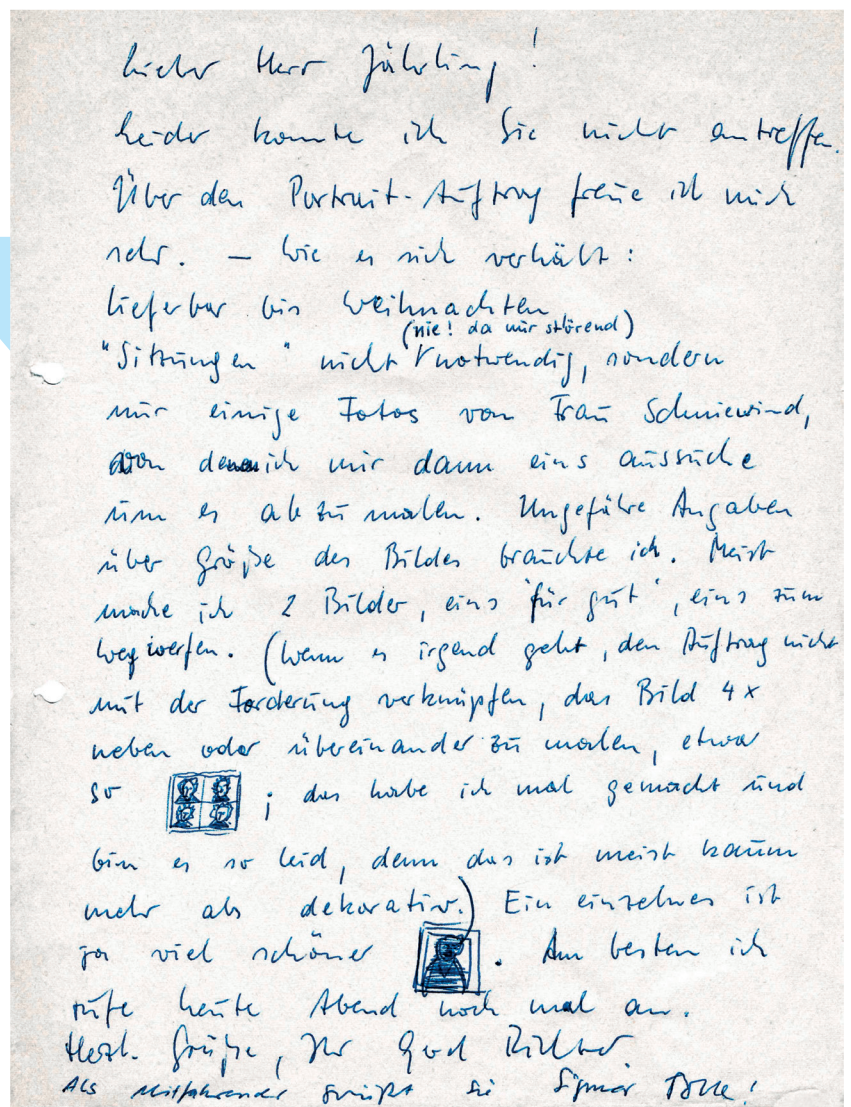 Lieber Herr Jährling!
Leider konnte ich Sie nicht antreffen.
Über den Portrait-Auftrag freue ich mich
sehr. — Wie es sich verhält:
lieferbar bis Weihnachten
(nie! da mir störend)
"Sitzungen" nicht notwendig, sondern
nur einige Fotos von Frau Schniewind,
von denen ich mir dann eins aussuche
um es abzumalen. Ungefähre Angaben
über Größe des Bildes brauchte ich. Meist
mache ich 2 Bilder, eins 'für gut', eins zum
wegwerfen. (Wenn es irgend geht, den Auftrag nicht
mit der Forderung verknüpfen, das Bild 4x
neben oder übereinander zu malen, etwa
so ; das habe ich mal gemacht und
bin es so leid, denn das ist meist kaum
mehr als dekorativ.) Ein einzelnes ist
ja viel schöner . Am besten ich
rufe heute Abend noch mal an.
Herzl. Grüße, Ihr Gerd Richter
Als Mitfahrender grüßt Sie Sigmar Polke!